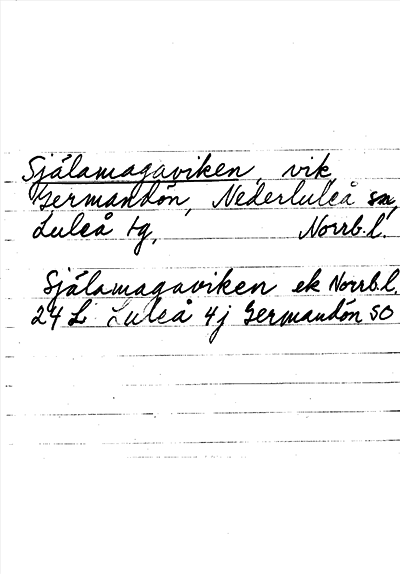 Själamagaviken, vik,
Germandön, Nederluleå sn,
Luleå tg, Norrb.l.
Själamagaviken ek Norrb.l.
24 L Luleå 4j Germandön SO